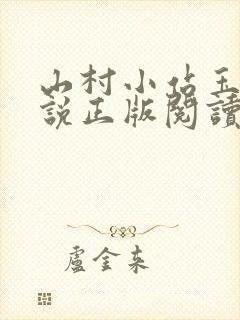 山村小站玉
說正版閱讀
盧金來